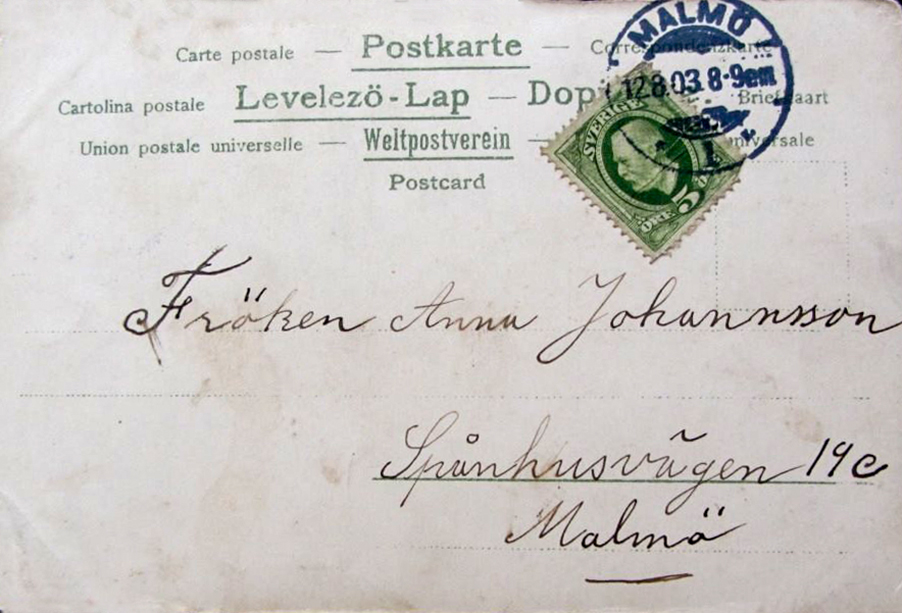 Carte postale — Postkarte — Correspondenzkarte
Cartolina postale Levelezö-Lap — Dopi Briefkaart
Union postale universelle — Weltpostverein — universale
Postcard
MALMÖ
12.8.03. 8-9em
1
SVERIGE
5
ÖRE
Fröken Anna Johannsson
Spånhusvägen 19c
Malmö